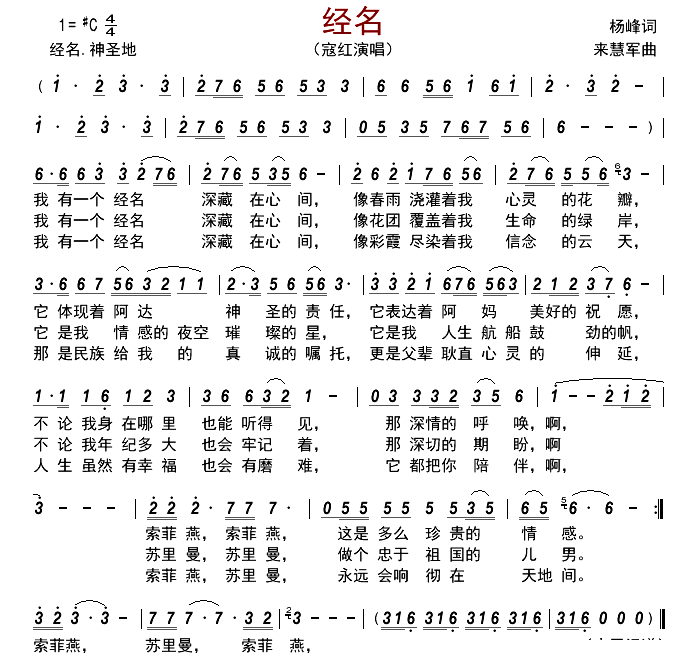 经名
1=#C 4/4
杨峰词
经名.神圣地
（寇红演唱）
来慧军曲
( 1 · 2 3 · 3 | 2 7 6 5 6 5 3 3 | 6 6 5 6 1 6 1 | 2 · 3 2 – |
1 · 2 3 · 3 | 2 7 6 5 6 5 3 3 | 0 5 3 5 7 6 7 5 6 | 6 – – – )
6 · 6 6 3 3 2 7 6 | 2 7 6 5 3 5 6 – | 2 6 2 1 7 6 5 6 | 2 7 6 5 5 6 6 3 – |
我 有一个 经名 深藏 在心 间， 像春雨 浇灌着我 心灵 的花 瓣，
我 有一个 经名 深藏 在心 间， 像花团 覆盖着我 生命 的绿 岸，
我 有一个 经名 深藏 在心 间， 像彩霞 尽染着我 信念 的云 天，
3 · 6 6 7 5 6 3 2 1 1 | 2 · 3 5 6 5 6 3 · | 3 3 2 1 6 7 6 5 6 3 | 2 1 2 3 7 6 – |
它 体现着 阿达 神 圣的 责任，它表达着 阿 妈 美好的 祝 愿，
它 是我 情感的 夜空 璀 璨的 星， 它是我 人生 航 船 鼓 劲的帆，
那 是民族 给我 的 真 诚的 嘱托，更是父辈 耿直 心 灵的 伸 延，
1 · 1 1 6 1 2 3 | 3 6 6 3 2 1 – | 0 3 3 3 2 1 6 | 1 – – 2 1 2 |
不 论 我身 在哪 里 也能 听得 见， 那 深情的 呼 唤，啊，
不 论 我年 纪多 大 也会 牢记 着， 那 深切的 期 盼，啊
人 生 虽然 有幸 福 也会 有磨 难， 它 都把你 陪 伴，啊，
3 – – – | 2 2 2 · 7 7 7 · | 0 5 5 5 5 5 3 5 | 6 5 5 6 · 6 – :||
索菲 燕， 索菲 燕， 这是 多么 珍 贵的 情 感。
苏里 曼，苏里 曼， 做个 忠于 祖 国的 儿 男。
索菲 燕，苏里 曼， 永远 会响 彻 在 天地 间。
3 2 3 · 3 · | 7 7 7 · 7 · 3 2 | 2 3 – – – | (3 1 6 3 1 6 3 1 6 3 1 6 | 3 1 6 0 0 0 ) |
索菲燕， 苏里曼， 索菲 燕，